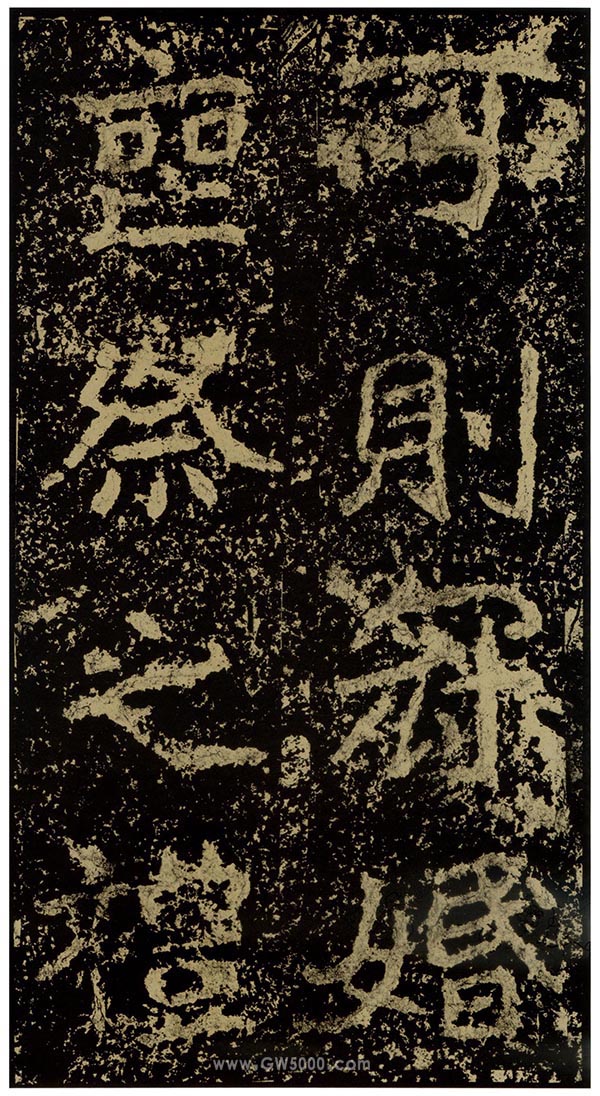 可則婚
祭之禮
www.GW5000.com